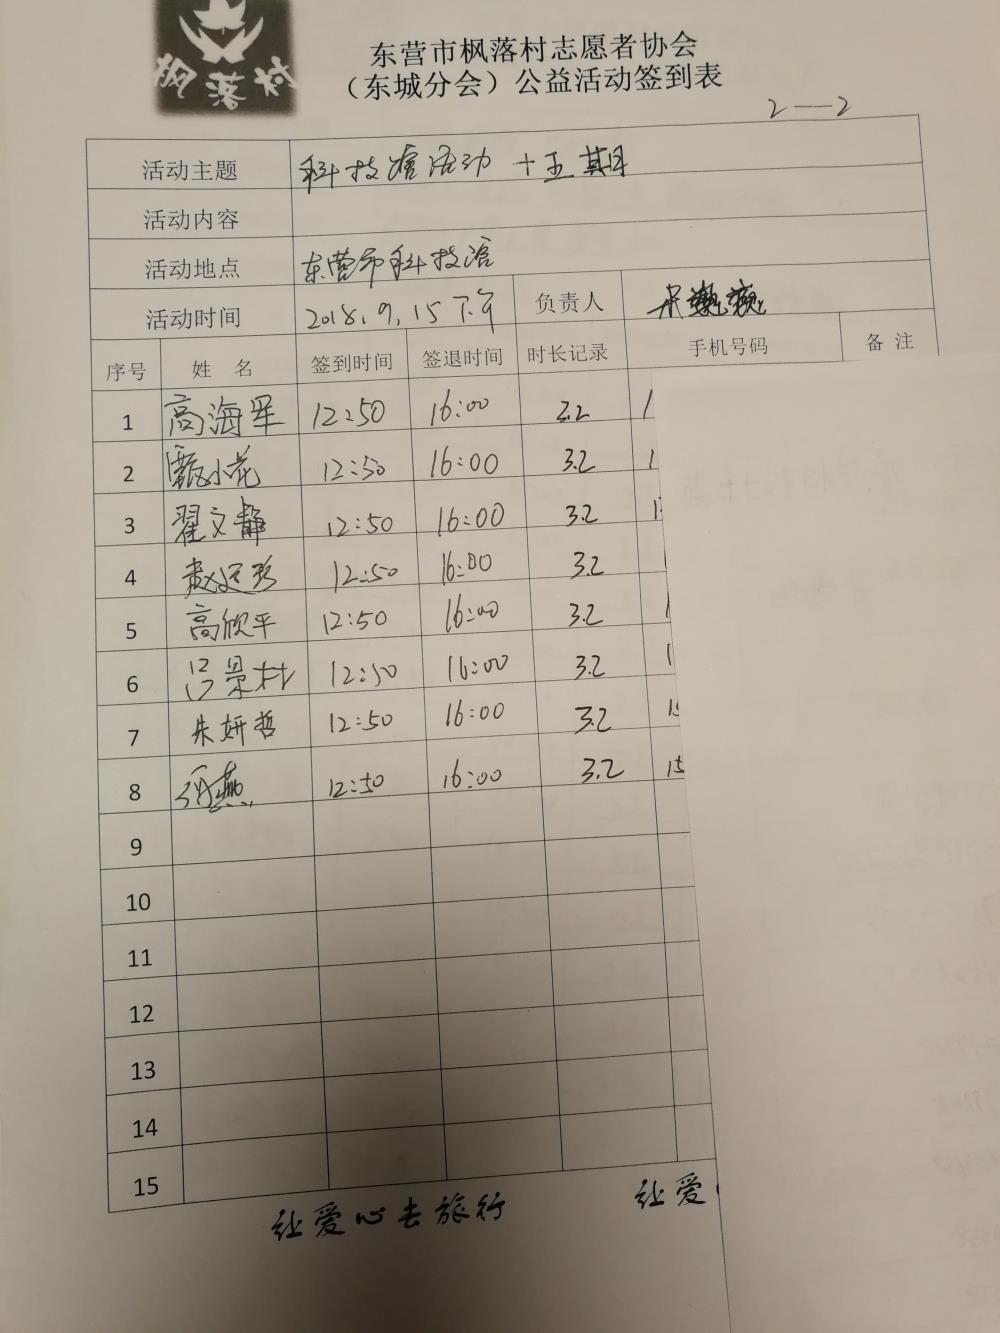 枫落村
东营市枫落村志愿者协会
（东城分会）公益活动签到表
2—2
活动主题 科技馆活动 十五期
活动内容
活动地点 东营市科技馆
活动时间 2018.9.15 下午 负责人
序号 姓 名 签到时间 签退时间 时长记录 手机号码 备 注
1 高海军 12:50 16:00 3.2 1
2 甄小花 12:50 16:00 3.2 1
3 翟文静 12:50 16:00 3.2 1
4 12:50 16:00 3.2 1
5 高欣平 12:50 16:00 3.2 1
6 吕景村 12:50 16:00 3.2 1
7 朱妍哲 12:50 16:00 3.2 15
8 12:50 16:00 3.2 15
9
10
11
12
13
14
15
让爱心去旅行 让爱